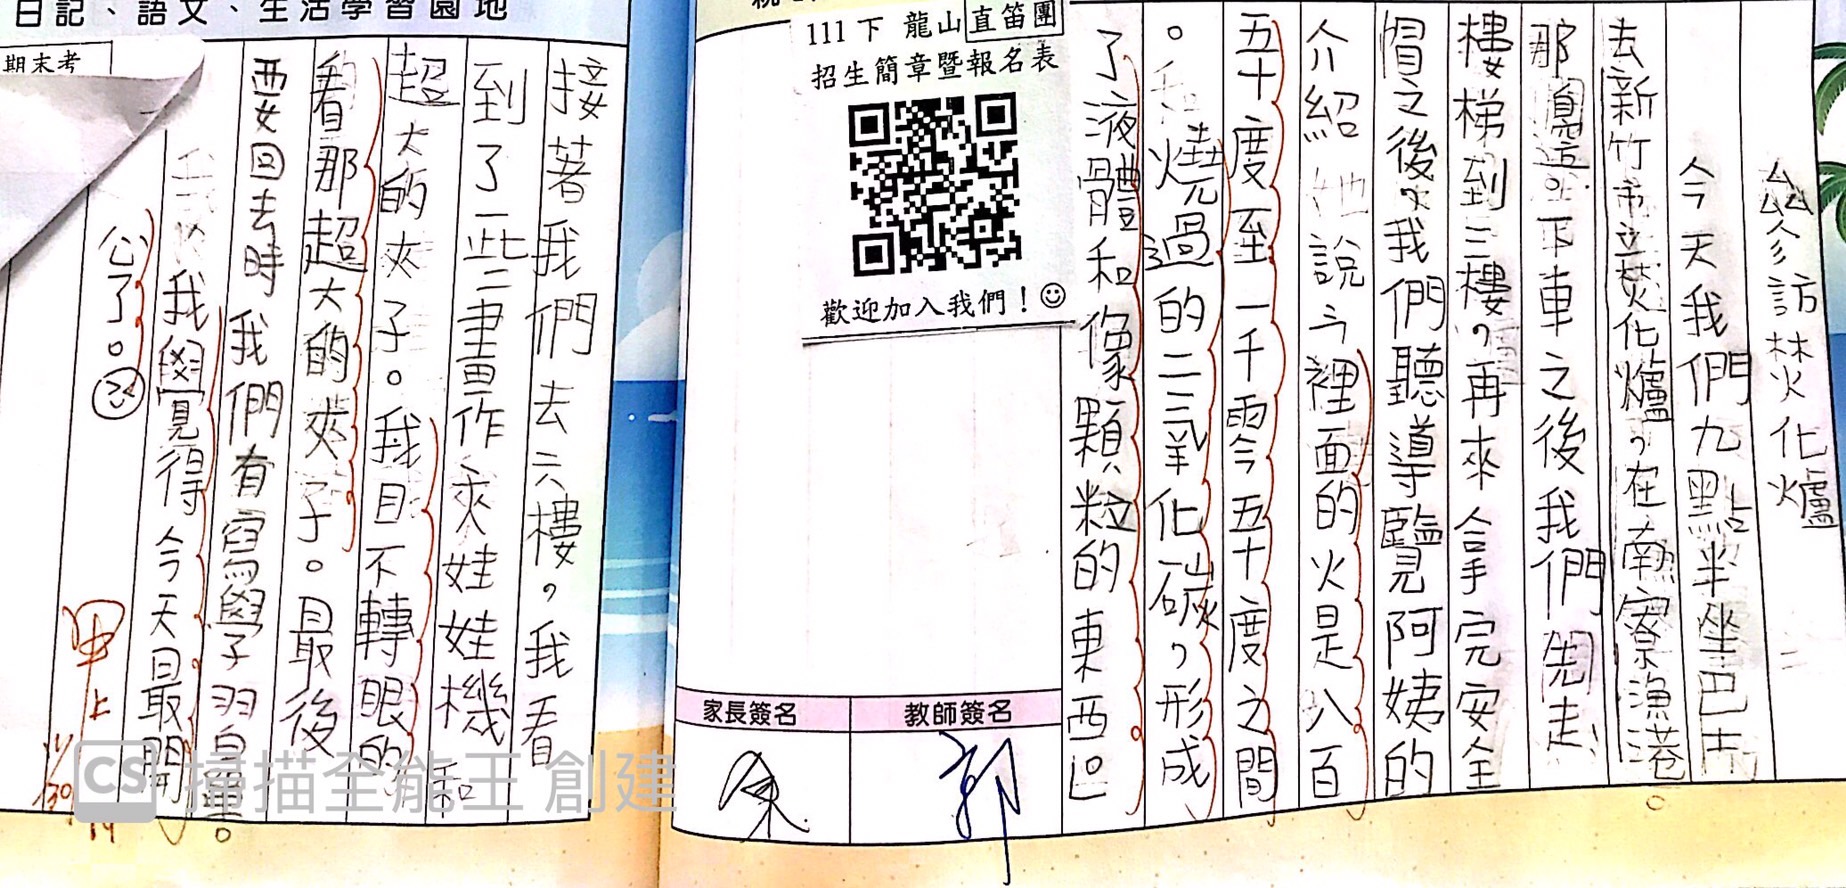 參訪焚火化爐
今天我們九點半坐巴士
去新竹市立焚化爐，在南寮漁港。
那邊。下車之後我們先走
樓梯到三樓，再來拿完安全
帽之後，我們聽導覽阿姨的
介紹他說，裡面的火是八百
五十度至一千零五十度之間
。燒過的二氧化碳，形成
了液體和像顆粒的東西
接著我們去六樓，我看
到了一些畫作夾娃娃機和
超大的夾子。我目不轉眼的
看那超大的夾子。最後
要回去時我們有寫學習單。
我覺得今天最開
心了。
日記、語文、生活學習園地
期末考
111下 龍山直笛團
招生簡章暨報名表
歡迎加入我們！
家長簽名
教師簽名
陳
郭
CS 掃描全能王 創建